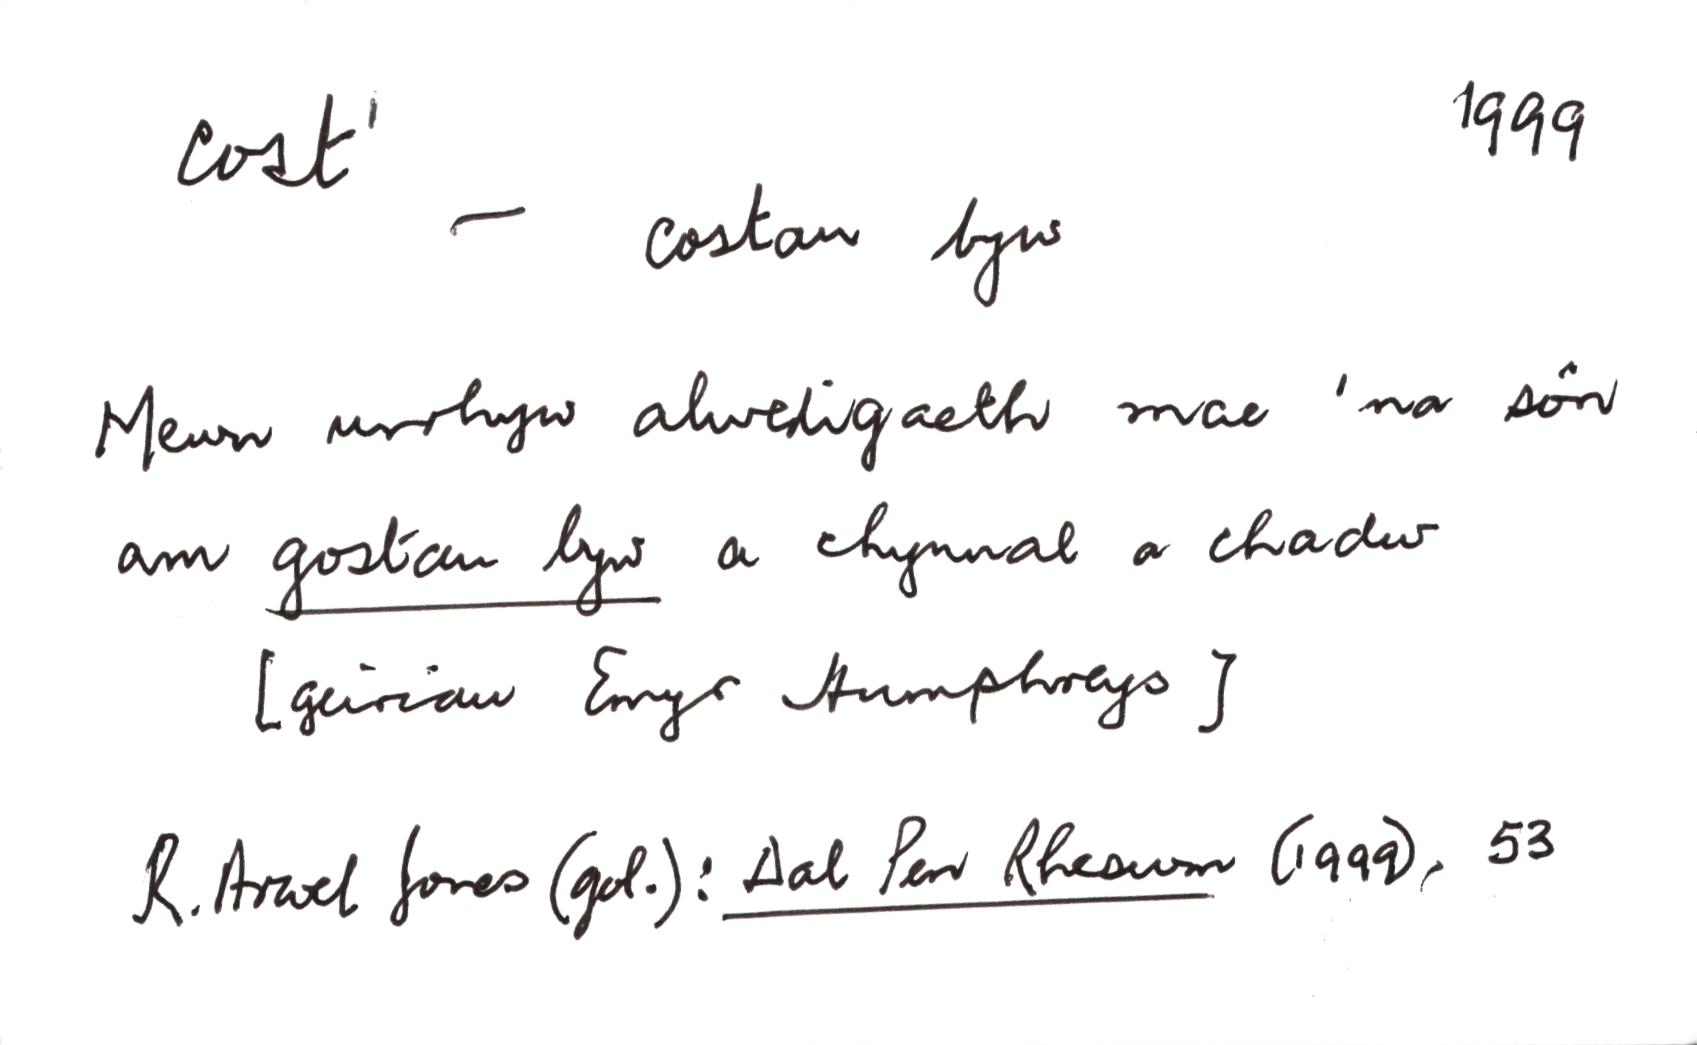 cost¹ 1999
– costau byw
Mewn unrhyw alwedigaeth mae 'na sôn
am gostau byw a chynnal a chadw
[geiriau Emyr Humphreys]
R. Arwel Jones (gol.): Dal Pen Rheswm (1999), 53